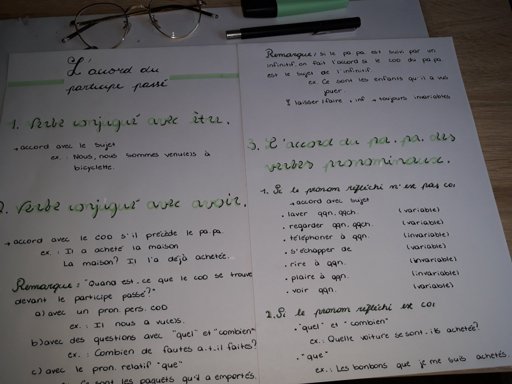 L'accord du
participe passé
1. Verbe conjugué avec être.
→ accord avec le sujet
ex.: Nous, nous sommes venu(e)s à
bicyclette.
2. Verbe conjugué avec avoir.
→ accord avec le COD s'il précède le pa.pa.
ex.: Il a acheté la maison
La maison? Il l'a déjà achetée.
Remarque: "Quand est-ce que le COD se trouve
devant le participe passé?"
a) avec un pron. pers. COD
ex.: Il nous a vu(e)s.
b) avec des questions avec "quel" et "combien"
ex.: Combien de fautes a-t-il faites?
c) avec le pron. relatif "que"
ex.: Ce sont les paquets qu'il a emportés.
Remarque: si le pa.pa est suivi par un
infinitif, on fait l'accord si le COD du pa.pa
est le sujet de l'infinitif.
ex.: Ce sont les enfants qu'il a vus
jouer.
laisser / faire + inf → toujours invariables
3. L'accord du pa. pa. des
verbes pronominaux.
1. Si le pronom réfléchi n'est pas COI
→ accord avec sujet
• laver qqn. qqch. (variable)
• regarder qqn. qqch. (variable)
• téléphoner à qqn. (invariable)
• s'échapper de (variable)
• rire à qqn. (invariable)
• plaire à qqn. (invariable)
• voir qqn. (variable)
2. Si le pronom réfléchi est COI
• "quel" et "combien"
ex.: Quelle voiture se sont-ils achetée?
• "que"
ex.: Les bonbons que je me suis achetés.